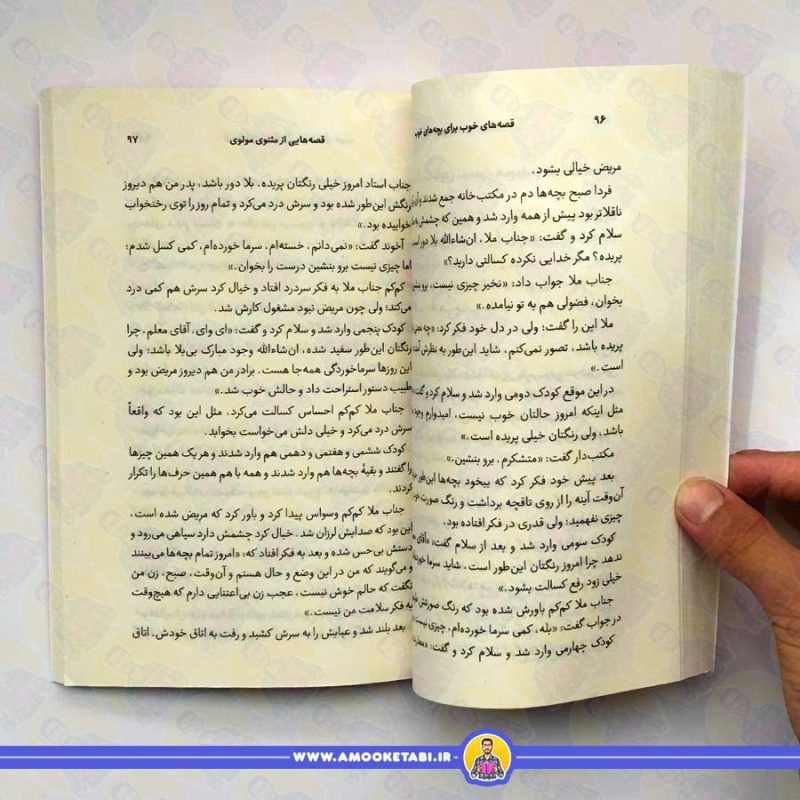 ۹۶
قصه‌های خوب برای بچه‌های خوب
مریض خیالی بشود.
فردا صبح بچه‌ها دم در مکتب‌خانه جمع شدند و آن
ناقلاتر بود پیش از همه وارد شد و همین که چشمش به
سلام کرد و گفت: «جناب ملا، ان‌شاءالله بلا دور است
پریده؟ مگر خدایی نکرده کسالتی دارید؟»
جناب ملا جواب داد: «نخیر چیزی نیست، برو بنشین
بخوان، فضولی هم به تو نیامده.»
ملا این را گفت؛ ولی در دل خود فکر کرد: «چه
پریده باشد، تصور نمی‌کنم، شاید این‌طور به نظرش آمده
است.»
در این موقع کودک دومی وارد شد و سلام کرد و گفت:
مثل اینکه امروز حالتان خوب نیست، امیدوارم وجود
باشد؛ ولی رنگتان خیلی پریده است.»
مکتب‌دار گفت: «متشکرم، برو بنشین.»
بعد پیش خود فکر کرد که بیخود بچه‌ها این‌طور
آن‌وقت آینه را از روی تاقچه برداشت و رنگ صورت
چیزی نفهمید؛ ولی قدری در فکر افتاده بود.
کودک سومی وارد شد و بعد از سلام گفت: «آقای
ندهد چرا امروز رنگتان این‌طور است، شاید سرما
خیلی زود رفع کسالت بشود.»
جناب ملا کم‌کم باورش شده بود که رنگ صورتش
در جواب گفت: «بله، کمی سرما خورده‌ام، چیزی نیست
کودک چهارمی وارد شد و سلام کرد و گفت:
قصه‌هایی از مثنوی مولوی
۹۷
جناب استاد امروز خیلی رنگتان پریده. بلا دور باشد، پدر من هم دیروز
رنگش این‌طور شده بود و سرش درد می‌کرد و تمام روز را توی رختخواب
خوابیده بود.»
آخوند گفت: «نمی‌دانم، خسته‌ام، سرما خورده‌ام، کمی کسل شدم؛
اما چیزی نیست برو بنشین درست را بخوان.»
کم‌کم جناب ملا به فکر سردرد افتاد و خیال کرد سرش هم کمی درد
می‌کند؛ ولی چون مریض نبود مشغول کارش شد.
کودک پنجمی وارد شد و سلام کرد و گفت: «ای وای، آقای معلم، چرا
رنگتان این‌طور سفید شده، ان‌شاءالله وجود مبارک بی‌بلا باشد؛ ولی
این روزها سرماخوردگی همه‌جا هست. برادر من هم دیروز مریض بود و
طبیب دستور استراحت داد و حالش خوب شد.»
جناب ملا کم‌کم احساس کسالت می‌کرد، مثل این بود که واقعاً
سرش درد می‌کرد و خیلی دلش می‌خواست بخوابد.
کودک ششمی و هفتمی و دهمی هم وارد شدند و هر یک همین چیزها
را گفتند و بقیهٔ بچه‌ها هم وارد شدند و همه با هم همین حرف‌ها را تکرار
کردند.
جناب ملا کم‌کم وسواس پیدا کرد و باور کرد که مریض شده است،
این بود که صدایش لرزان شد. خیال کرد چشمش دارد سیاهی می‌رود و
دستش بی‌حس شده و بعد به فکر افتاد که: «امروز تمام بچه‌ها می‌بینند
و می‌گویند که من در این وضع و حال هستم و آن‌وقت، صبح، زن من
نگفت که حالم خوش نیست، عجب زن بی‌اعتنایی دارم که هیچ‌وقت
به فکر سلامت من نیست.»
بعد بلند شد و عبایش را به سرش کشید و رفت به اتاق خودش. اتاق
WWW.AMOOKETABI.IR